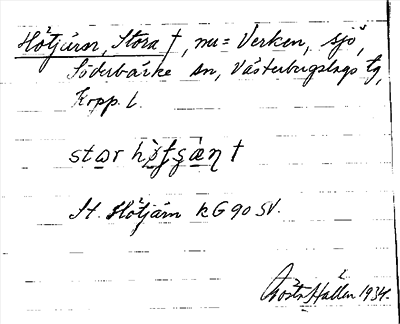 Hötjärn, Stora †, nu = Verken, sjö,
Söderbärke sn, Västerbergslags tg,
Kopp. l.
St. Hötjärn k G 90 SV.
Gösta Hallén 1934.